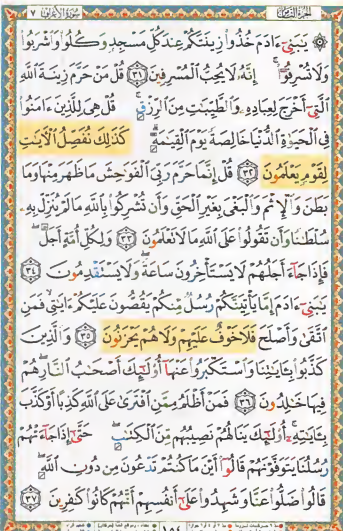 سورة الأعراف ٧
الجزء الثامن
۞ يَٰبَنِىٓ ءَادَمَ خُذُوا۟ زِينَتَكُمْ عِندَ كُلِّ مَسْجِدٍ وَكُلُوا۟ وَٱشْرَبُوا۟
وَلَا تُسْرِفُوٓا۟ إِنَّهُۥ لَا يُحِبُّ ٱلْمُسْرِفِينَ ٣١ قُلْ مَنْ حَرَّمَ زِينَةَ ٱللَّهِ
ٱلَّتِىٓ أَخْرَجَ لِعِبَادِهِۦ وَٱلطَّيِّبَٰتِ مِنَ ٱلرِّزْقِ ۚ قُلْ هِىَ لِلَّذِينَ ءَامَنُوا۟
فِى ٱلْحَيَوٰةِ ٱلدُّنْيَا خَالِصَةً يَوْمَ ٱلْقِيَٰمَةِ ۗ كَذَٰلِكَ نُفَصِّلُ ٱلْءَايَٰتِ
لِقَوْمٍ يَعْلَمُونَ ٣٢ قُلْ إِنَّمَا حَرَّمَ رَبِّىَ ٱلْفَوَٰحِشَ مَا ظَهَرَ مِنْهَا وَمَا
بَطَنَ وَٱلْإِثْمَ وَٱلْبَغْىَ بِغَيْرِ ٱلْحَقِّ وَأَن تُشْرِكُوا۟ بِٱللَّهِ مَا لَمْ يُنَزِّلْ بِهِۦ
سُلْطَٰنًا وَأَن تَقُولُوا۟ عَلَى ٱللَّهِ مَا لَا تَعْلَمُونَ ٣٣ وَلِكُلِّ أُمَّةٍ أَجَلٌ ۖ
فَإِذَا جَآءَ أَجَلُهُمْ لَا يَسْتَأْخِرُونَ سَاعَةً ۖ وَلَا يَسْتَقْدِمُونَ ٣٤
يَٰبَنِىٓ ءَادَمَ إِمَّا يَأْتِيَنَّكُمْ رُسُلٌ مِّنكُمْ يَقُصُّونَ عَلَيْكُمْ ءَايَٰتِى ۙ فَمَنِ
ٱتَّقَىٰ وَأَصْلَحَ فَلَا خَوْفٌ عَلَيْهِمْ وَلَا هُمْ يَحْزَنُونَ ٣٥ وَٱلَّذِينَ
كَذَّبُوا۟ بِـَٔايَٰتِنَا وَٱسْتَكْبَرُوا۟ عَنْهَآ أُو۟لَٰٓئِكَ أَصْحَٰبُ ٱلنَّارِ ۖ هُمْ
فِيهَا خَٰلِدُونَ ٣٦ فَمَنْ أَظْلَمُ مِمَّنِ ٱفْتَرَىٰ عَلَى ٱللَّهِ كَذِبًا أَوْ كَذَّبَ
بِـَٔايَٰتِهِۦٓ ۚ أُو۟لَٰٓئِكَ يَنَالُهُمْ نَصِيبُهُم مِّنَ ٱلْكِتَٰبِ ۖ حَتَّىٰٓ إِذَا جَآءَتْهُمْ
رُسُلُنَا يَتَوَفَّوْنَهُمْ قَالُوٓا۟ أَيْنَ مَا كُنتُمْ تَدْعُونَ مِن دُونِ ٱللَّهِ ۖ
قَالُوا۟ ضَلُّوا۟ عَنَّا وَشَهِدُوا۟ عَلَىٰٓ أَنفُسِهِمْ أَنَّهُمْ كَانُوا۟ كَٰفِرِينَ ٣٧
١٥٤